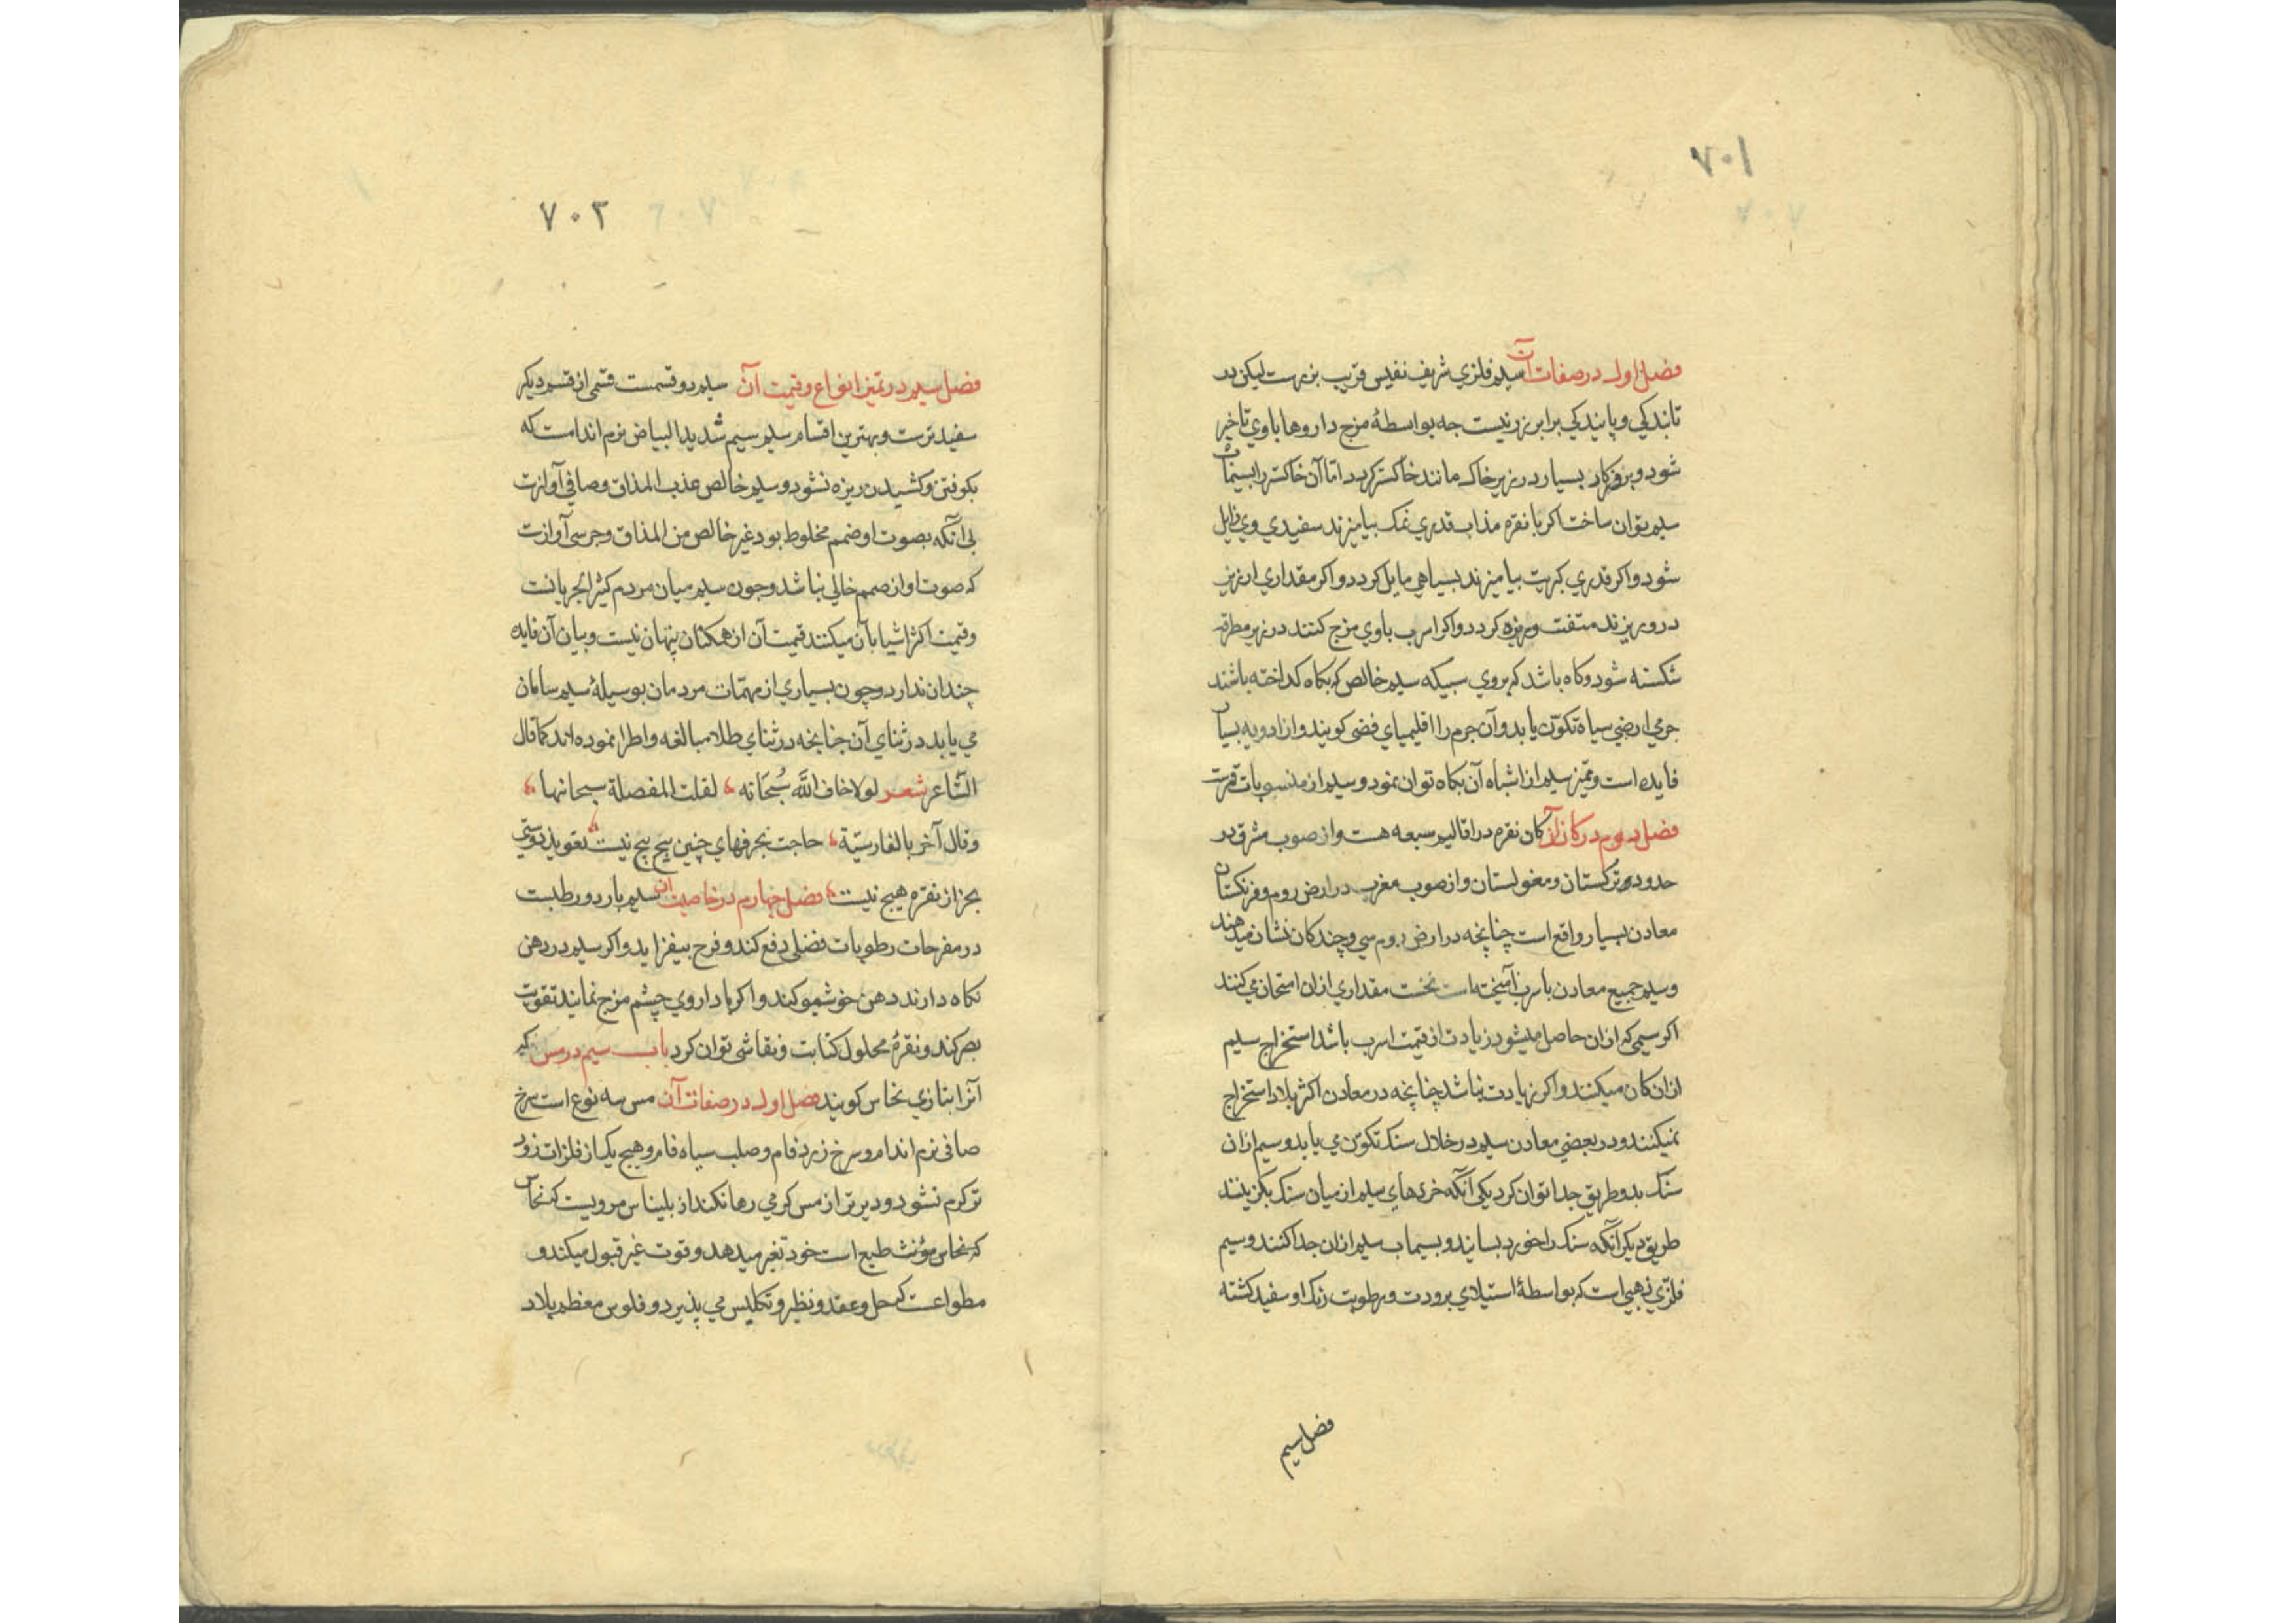 ۷۰۱
فصل اول در صفات آن سیم فلزی شریف نفیس قریب بزرست لیکن در
تابندکی و پایندکی برابر زر نیست جه بواسطهٔ مزج داروها باوی تاخیر
شود و بروزکار بسیار در زیر خاک مانند خاکستر کردد اما آن خاکستر را بسیماب
سیم توان ساخت اکر با نقره مذاب قدری نمک بیامیزند سفیدی وی زایل
شود واکر قدری کبریت بیامیزند بسیاهی مایل کردد واکر مقداری ارزیز
درو ریزند متفتت و ریزه کردد واکر اسرب باوی مزج کنند در زیر مطرقه
شکسته شود وکاه باشد که بروی سبیکه سیم خالص که بکاه کداخته باشند
جرمی ارضی سیاه تکون یابد وآن جرم را اقلیمیای فضی کویند واز ادویه بسیار
فایده است وتمیز سیم از اشباه آن بکاه توان نمود وسیم از منسوبات قمرست
فصل دوم در کان آن کان نقره در اقالیم سبعه هست واز صوب مشرق در
حدود ترکستان ومغولستان واز صوب مغرب در ارض روم وفرنکستان
معادن بسیار واقع است چنانچه در ارض روم سی وچند کان نشان میدهند
وسیم جمیع معادن باسرب آمیخته است نخست مقداری ازان امتحان می کنند
اکر سیمی که ازان حاصل میشود زیادت از قیمت اسرب باشد استخراج سیم
ازان کان میکنند واکر زیادت نباشد چنانچه در معادن اکثر بلاد استخراج
نمیکنند ودر بعضی معادن سیم در خلال سنک تکون می یابد وسیم ازان
سنک بدو طریق جدا توان کرد یکی آنکه خردهای سیم از میان سنک بکزینند
طریق دیکر آنکه سنک را خورد بسایند وبسیماب سیم ازان جدا کنند وسیم
فلزی ذهبی است که بواسطهٔ استیلای برودت ورطوبت رنک او سفید کشته
فصل سیم
۷۰۲
فصل سیم در تمیز انواع وقیمت آن سیم دو قسمست قسمی از قسم دیکر
سفیدترست وبهترین اقسام سیم سیم شدید البیاض نرم اندامست که
بکوفتن وکشیدن ریزه نشود وسیم خالص عذب المذاق وصافی آوازست
بی آنکه بصوت او ضمم مخلوط بود غیر خالص من المذاق وجرسی آوازست
که صوت او از صمم خالی نباشد وجون سیم میان مردم کثیر الجریانست
وقیمت اکثر اشیا بآن میکنند قیمت آن از همکنان پنهان نیست وبیان آن فایده
چندان ندارد وچون بسیاری از مهمّات مردمان بوسیلهٔ سیم سامان
می یابد در ثنای آن چنانچه در ثنای طلا مبالغه واطرا نموده اند کما قال
الشّاعر شعر لولا خاف اللّه سُبحَانه لقلت المفصلة سبحانها
وقال آخر بالفارسیّة حاجت بحرفهای چنین پیچ پیچ نیست تعویذ دوستی
بجز از نقره هیچ نیست فصل چهارم در خاصیت آن سیم بارد ورطبست
در مفرحات رطوبات فضلی دفع کند وفرح بیفزاید واکر سیم در دهن
نکاه دارند دهن خوشبو کند واکر با داروی چشم مزج نمایند تقویت
بصر کند ونقرهٔ محلول کتابت ونقاشی توان کرد باب سیم در مس که
آنرا بتازی نحاس کویند فصل اول در صفات آن مس سه نوع است سرخ
صافی نرم اندام وسرخ زرد فام وصلب سیاه فام وهیچ یک از فلزات زود
تر کرم نشود ودیرتر از مس کرمی رها نکند از بلیناس مرویست که نحاس
که نحاس مؤنث طبع است خود تغیر میدهد وقوت غیر قبول میکند و
مطواعست که حل وعقد ونظر وتکلیس می پذیرد وفلوس معظم بلاد